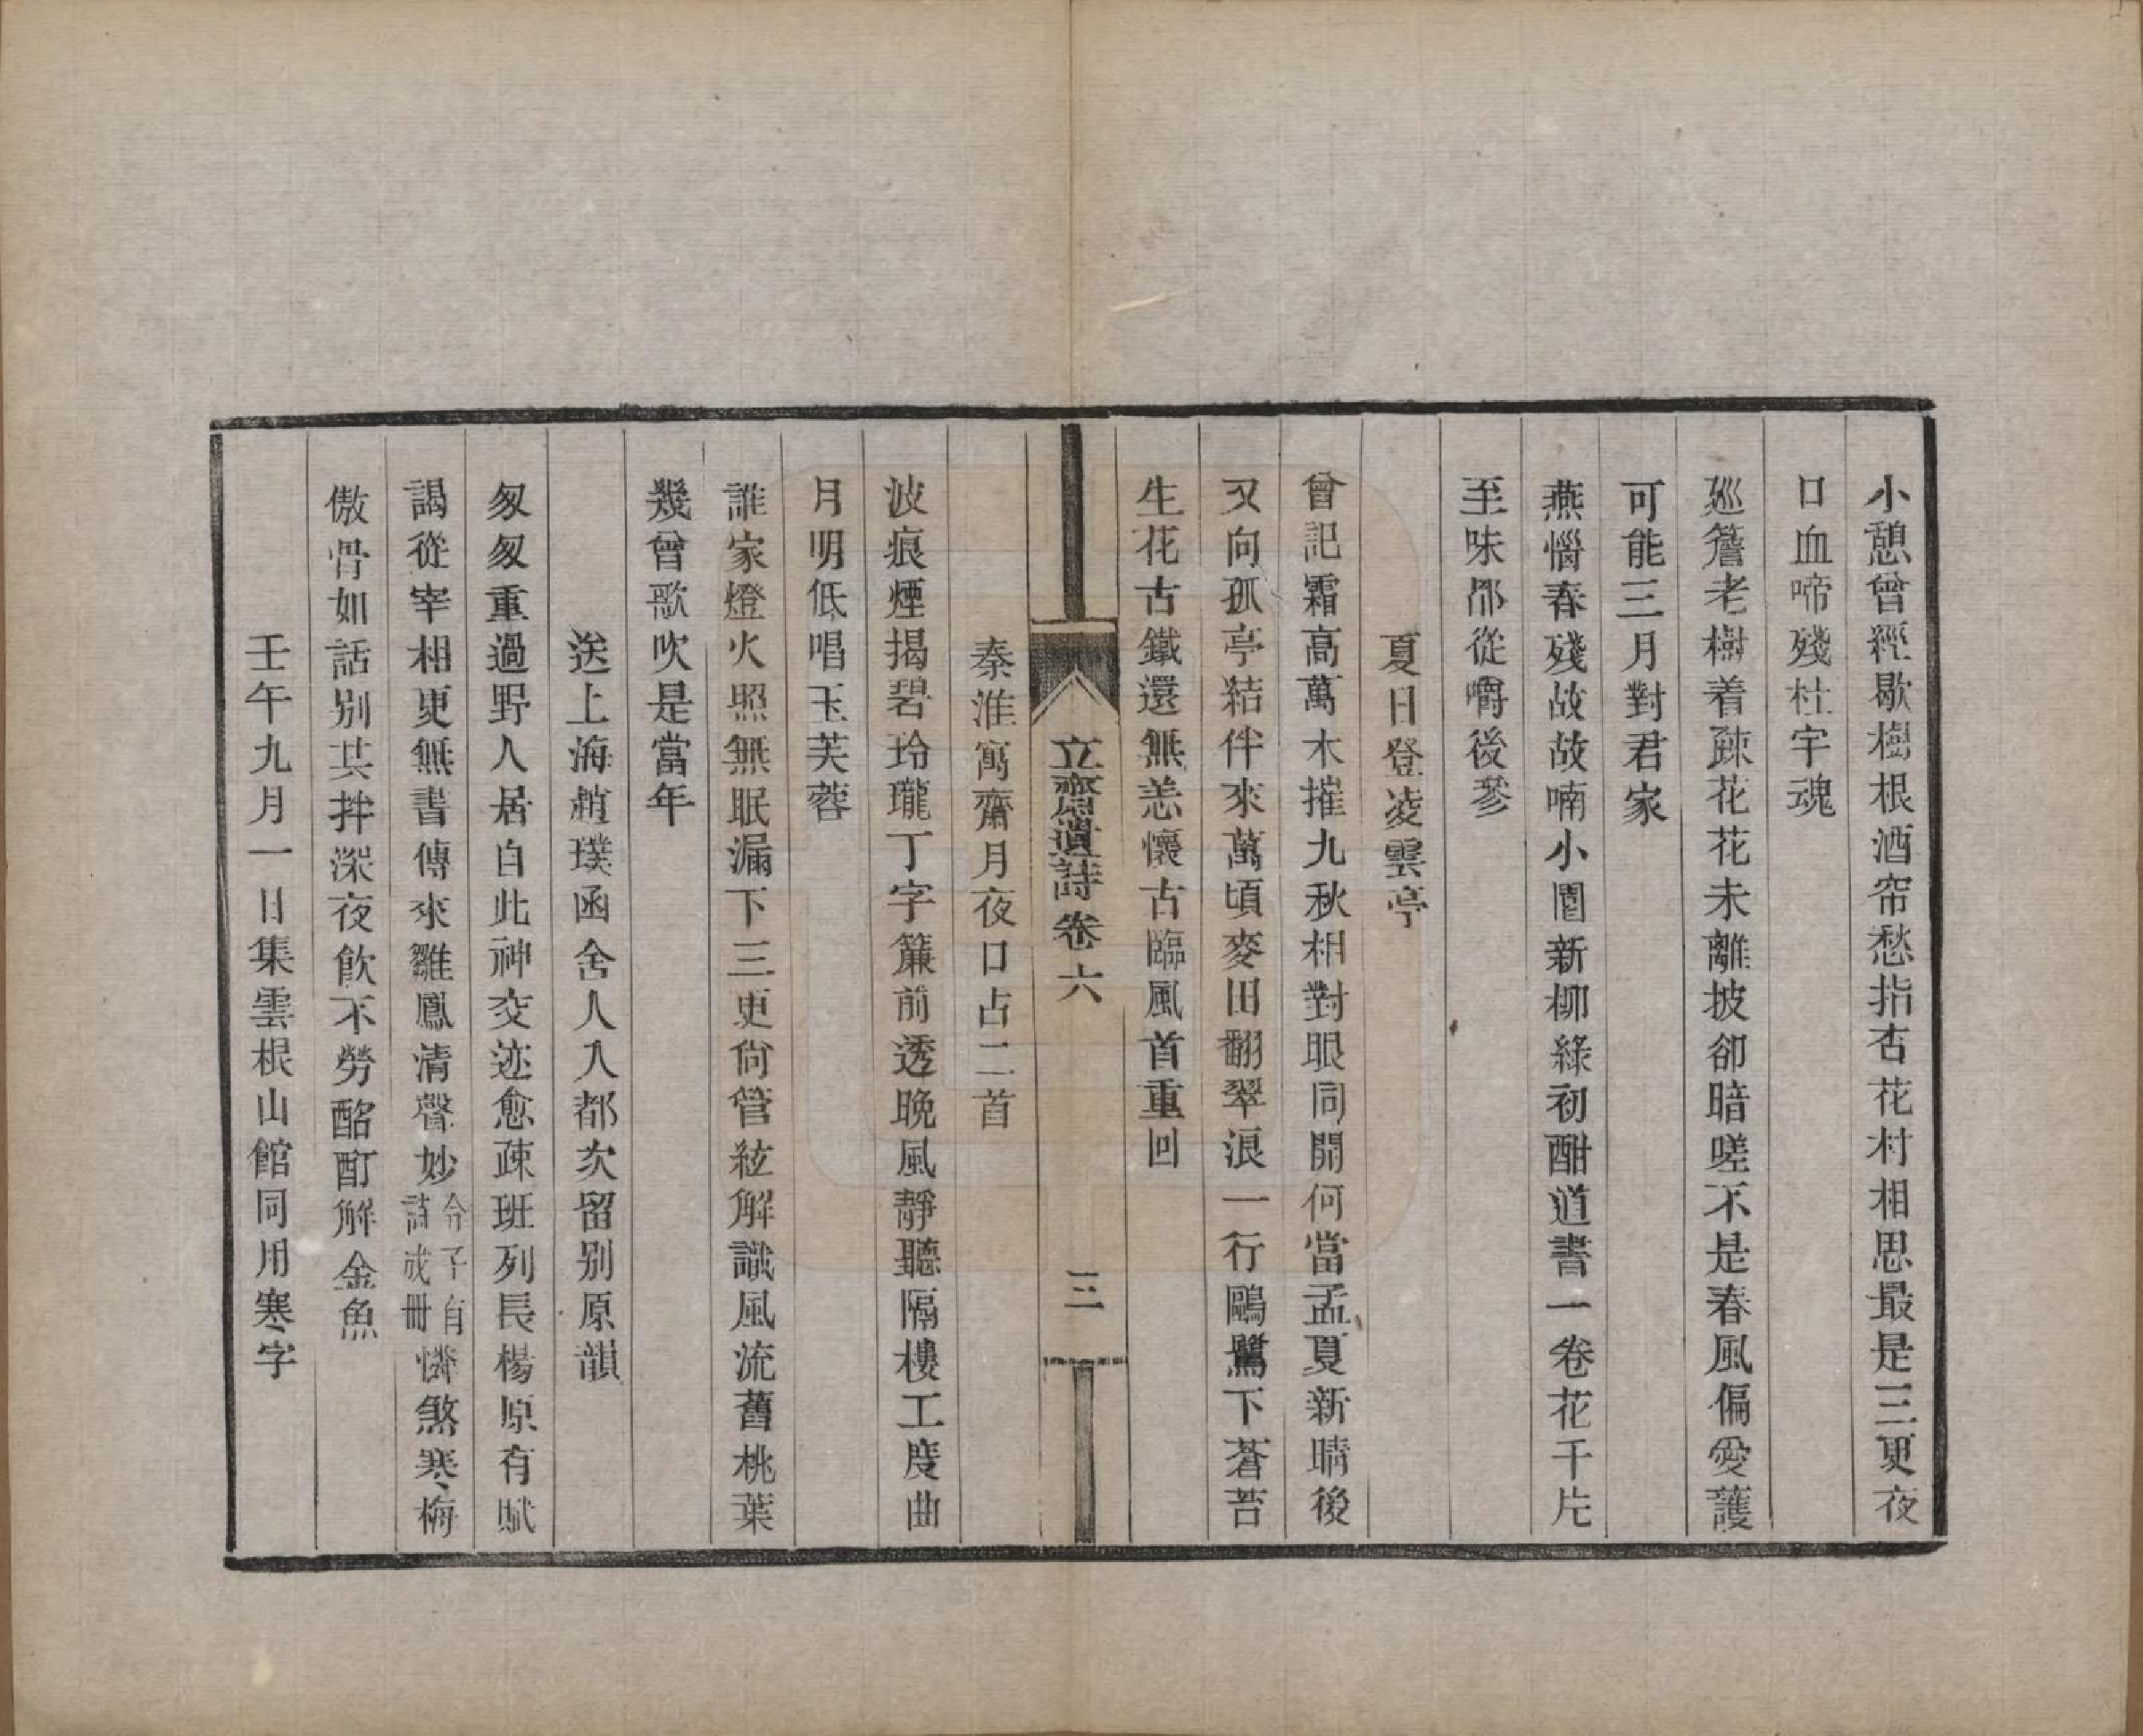 小憩曾經歇樹根酒帘愁指杏花村相思最是三更夜
口血啼殘杜宇魂
廵簷老樹着疎花花未離披卻暗嗟不是春風偏愛護
可能三月對君家
燕惱春殘故故喃小園新柳綠初酣道書一卷花千片
至味都從嚼後參
夏日登凌雲亭
曾記霜高萬木摧九秋相對眼同開何當孟夏新晴後
又向孤亭結伴來萬頃麥田翻翠浪一行鷗鷺下蒼苔
生花古鐵還無恙懷古臨風首重回
立齋遺詩卷六
三
秦淮寓齋月夜口占二首
波痕煙揭碧玲瓏丁字簾前透晚風靜聽隔樓工度曲
月明低唱玉芙蓉
誰家燈火照無眠漏下三更尙管絃解識風流舊桃葉
幾曾歌吹是當年
送上海趙璞函舍人入都次留別原韻
匆匆重過野人居自此神交迹愈疎班列長楊原有賦
謁從宰相更無書傳來雛鳳清聲妙令子有詩成冊憐煞寒梅
傲骨如話別共拌深夜飲不勞酩酊解金魚
壬午九月一日集雲根山館同用寒字